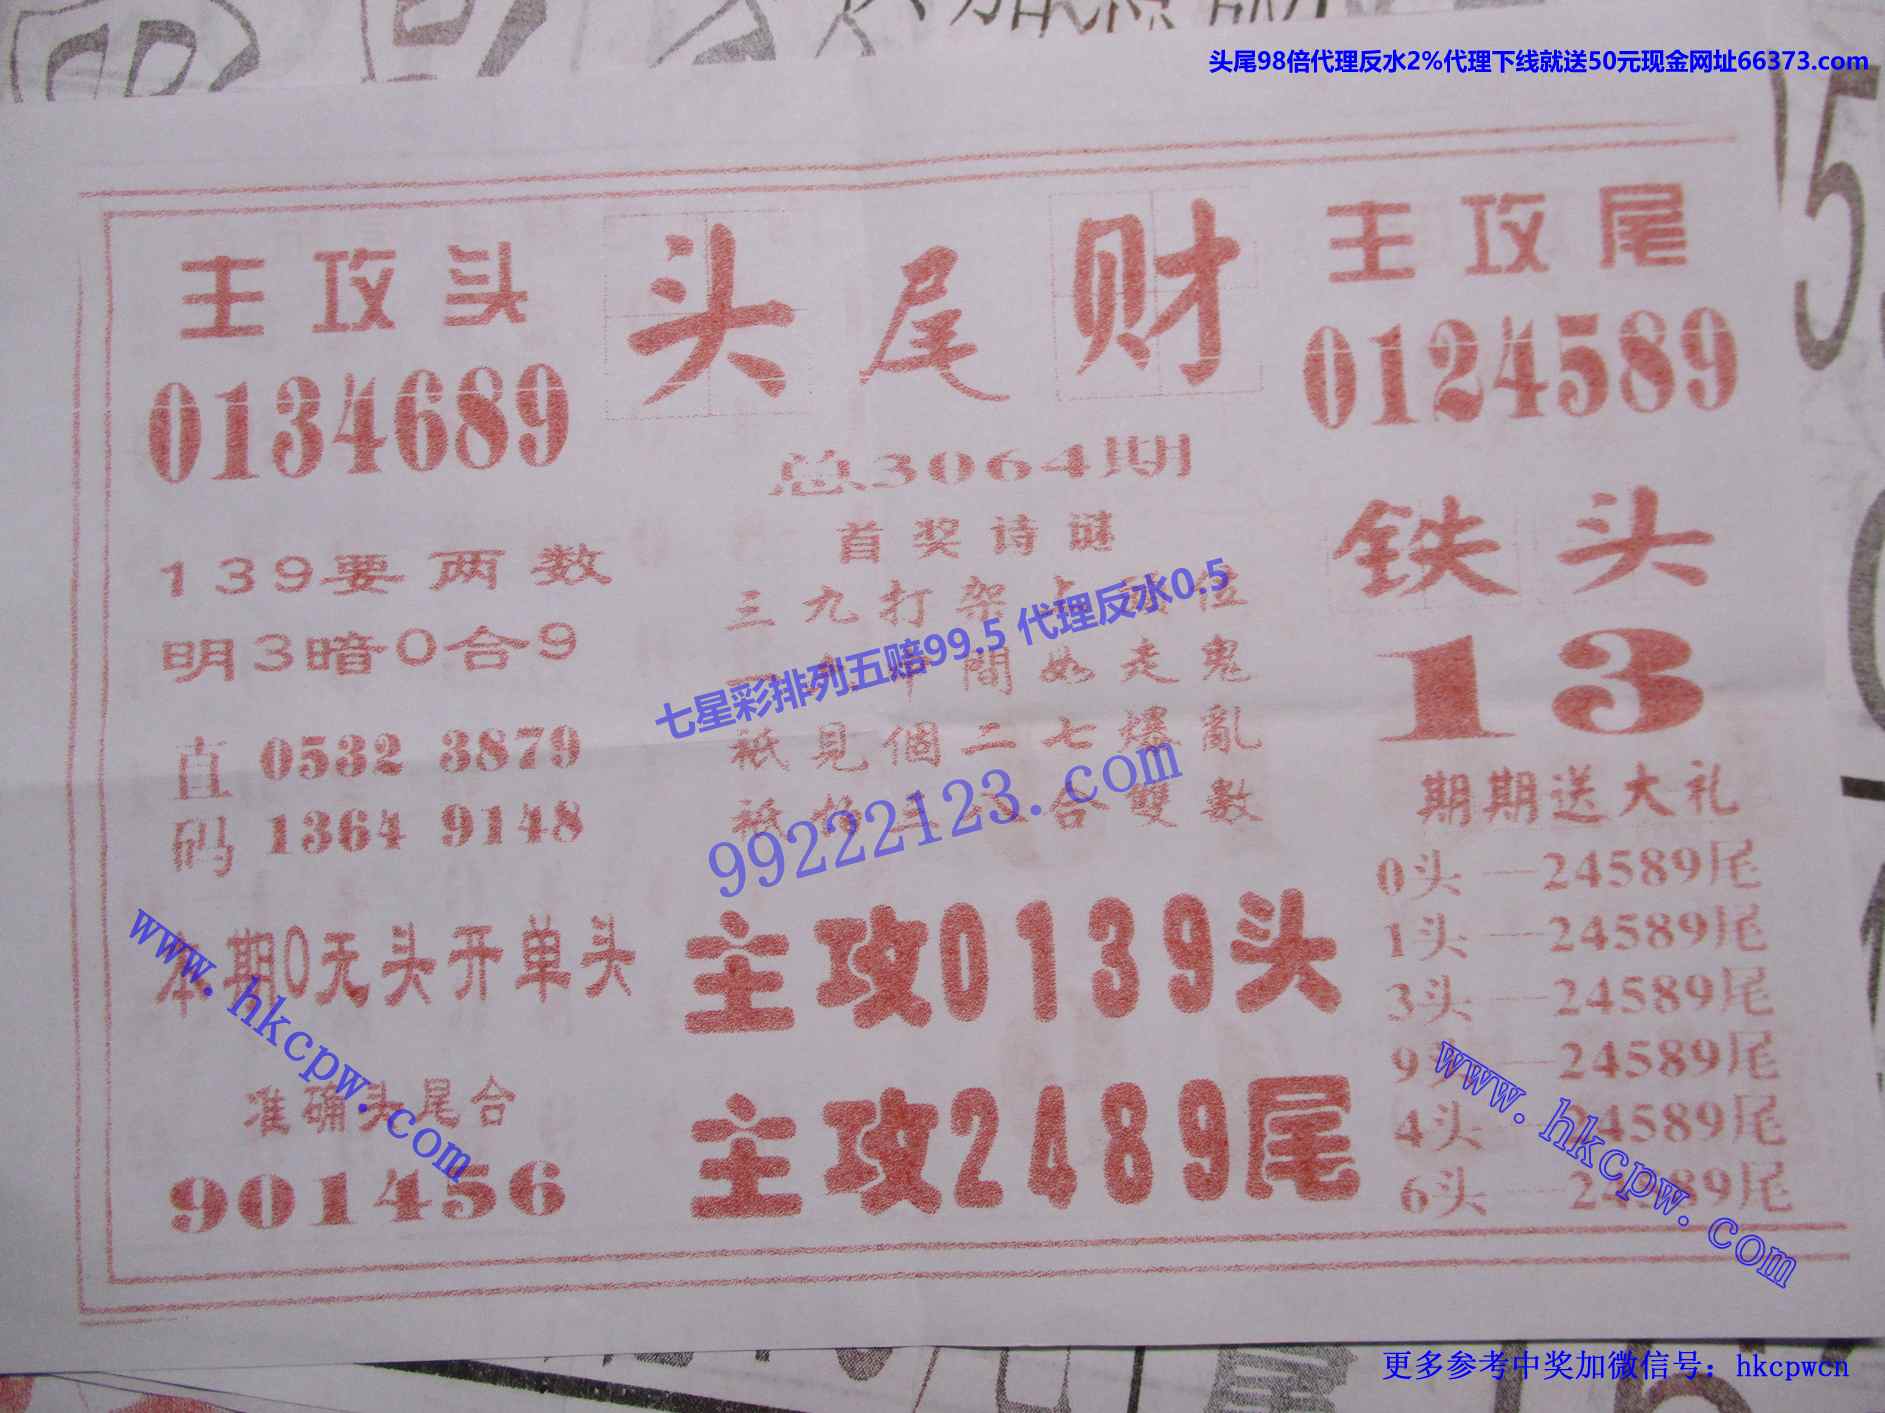 头尾98倍代理反水2%代理下线就送50元现金网址66373.com
主攻头
0134689
头尾财
主攻尾
0124589
总3064期
首奖诗谜
三九打架占 位
中間如走鬼
祇見個二七爆亂
祇 合雙數
七星彩排列五赔99.5 代理反水0.5
99222123.com
139要两数
明3暗0合9
直码
0532 3879
1364 9148
铁头
13
期期送大礼
0头—24589尾
1头—24589尾
3头—24589尾
9头—24589尾
4头—24589尾
6头—24589尾
本期0无头开单头
准确头尾合
901456
主攻0139头
主攻2489尾
www.hkcpw.com
www.hkcpw.com
更多参考中奖加微信号：hkcpwcn